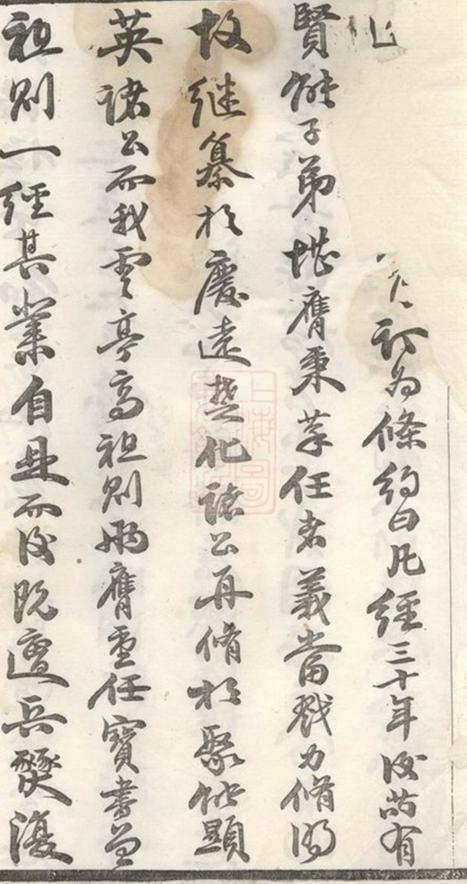 訂為條約曰凡經三十年後苟有
賢能子弟堪膺秉筆任者義當戮力脩
故继纂於慶遠楚化諸公再脩於聚能顯
英諸公而我雲亭高祖則兩膺重任實書首
祖則一經其業自是而後既遭兵燹復